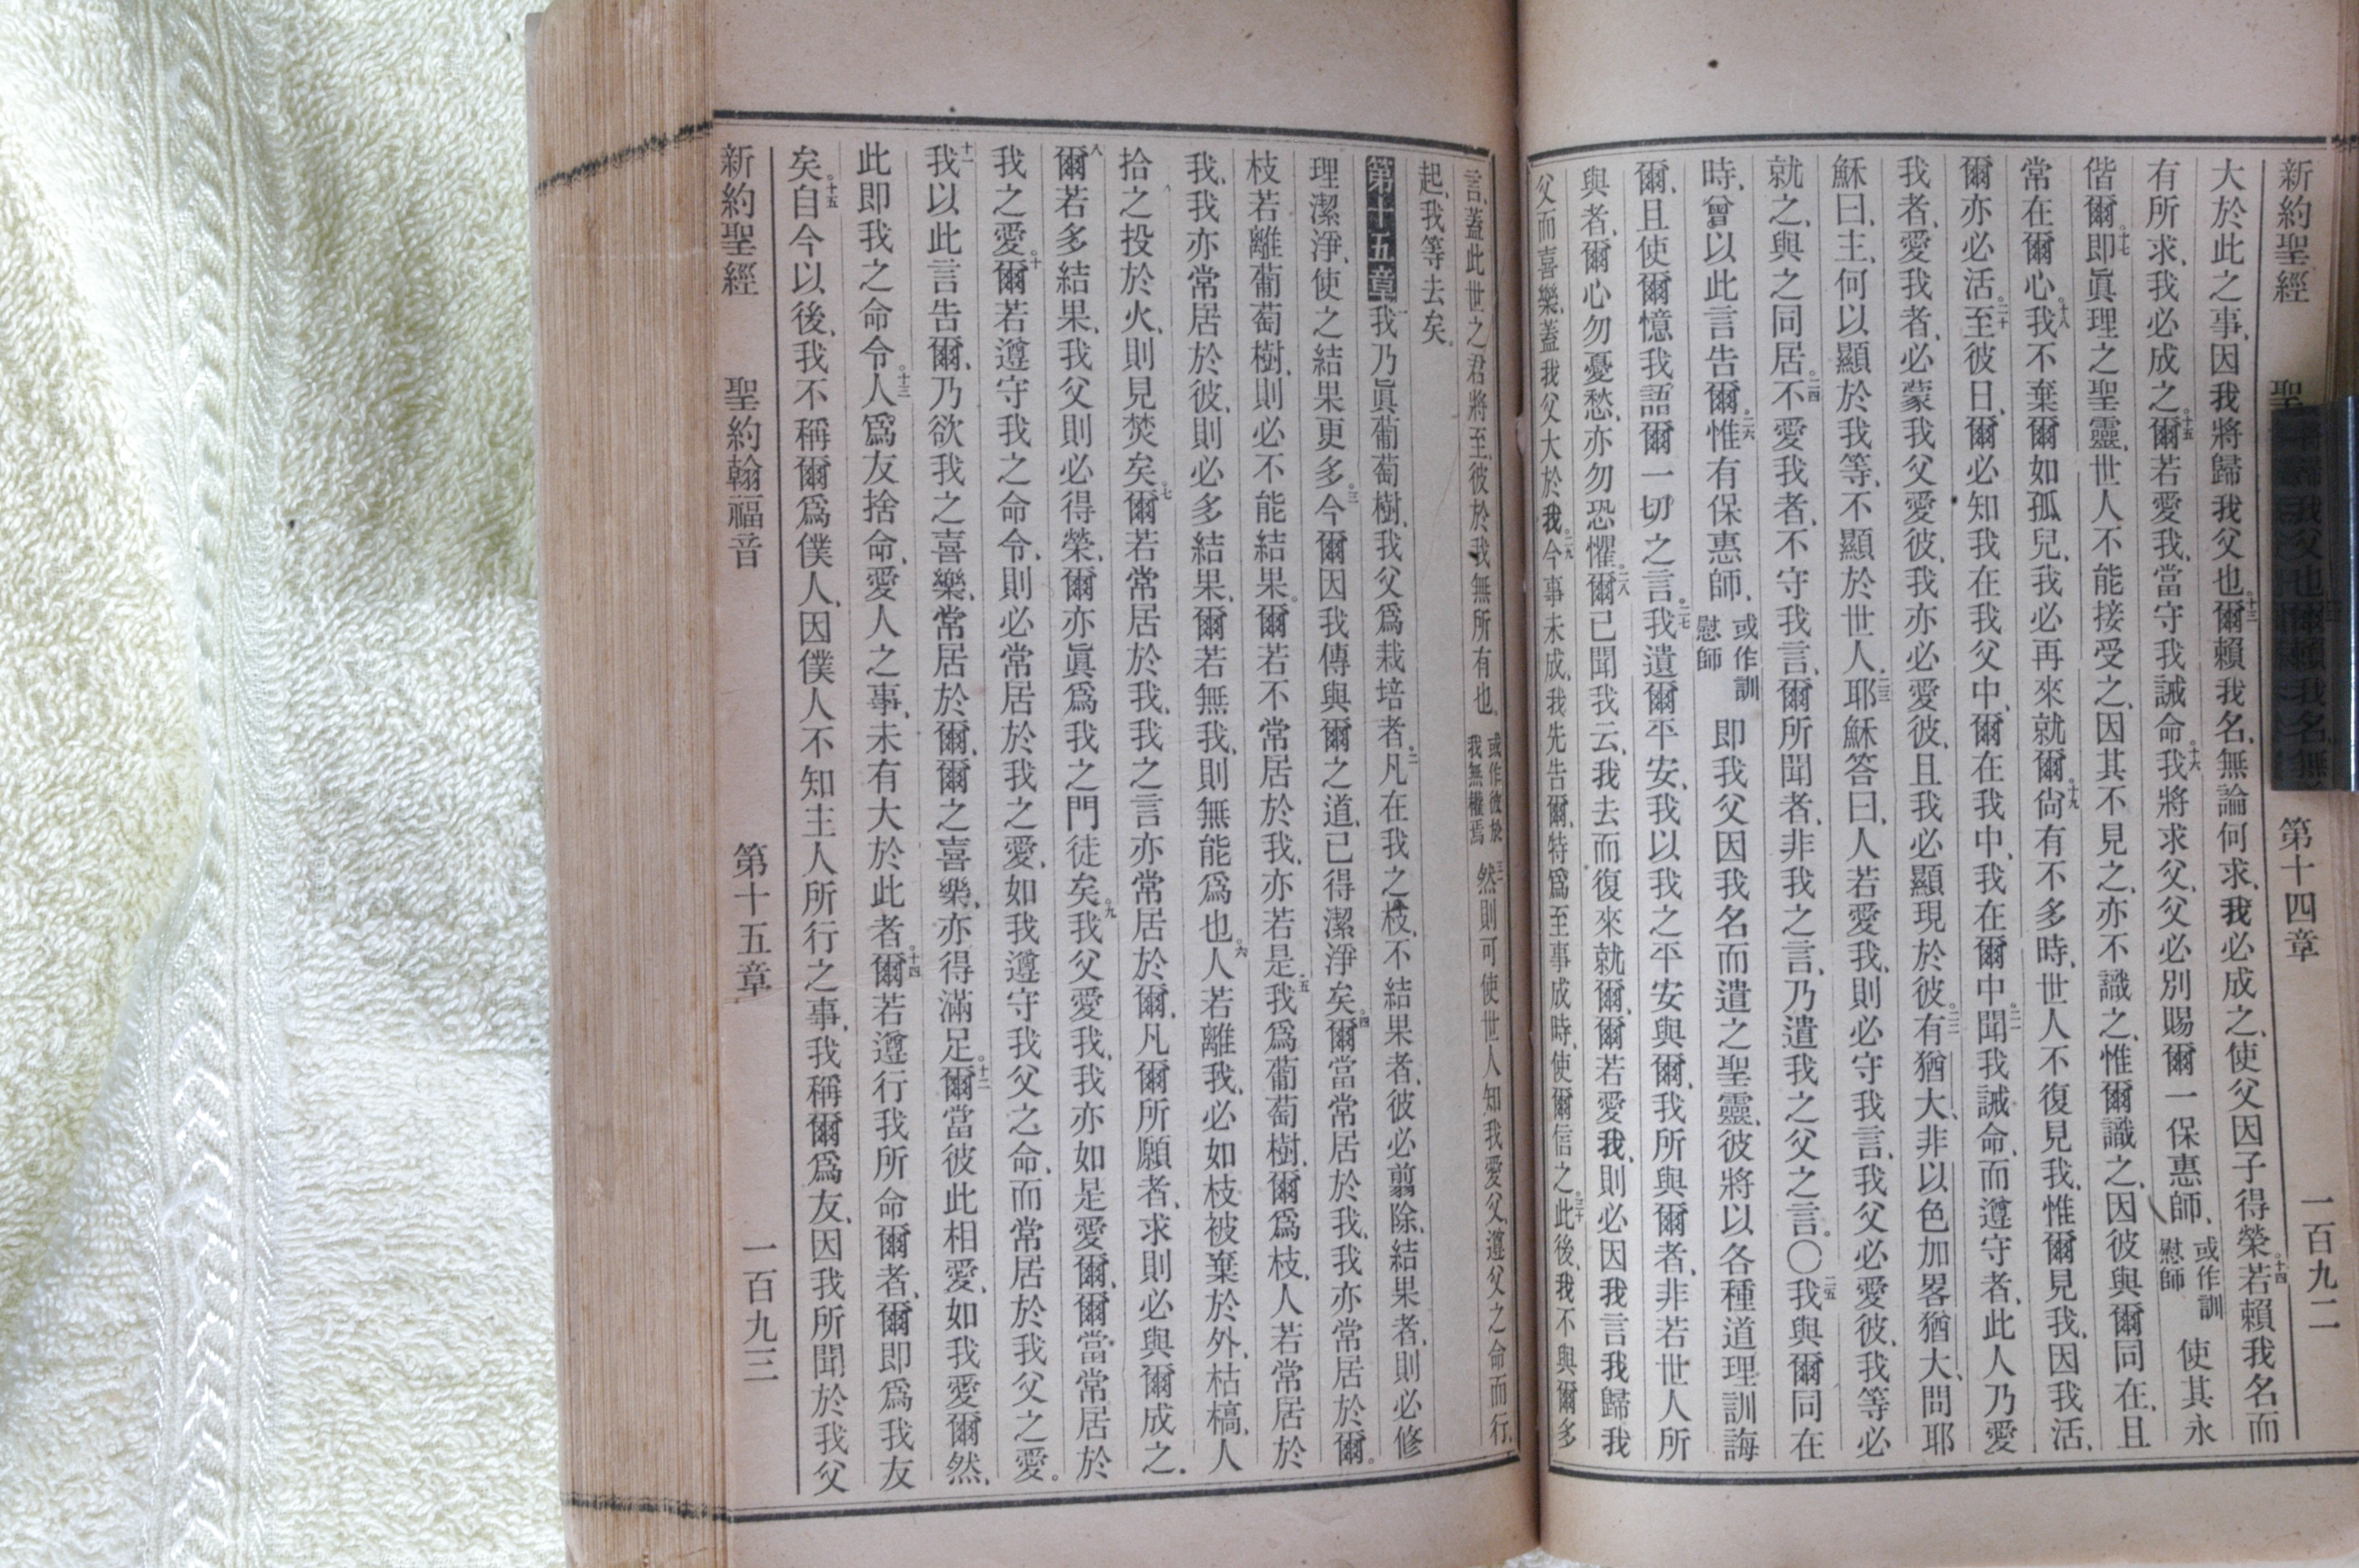 新約聖經 聖 第十四章 一百九二
大於此之事、因我將歸我父也。十三爾賴我名、無論何求、我必成之、使父因子得榮。十四若賴我名而
有所求、我必成之。十五爾若愛我、當守我誡命。十六我將求父、父必別賜爾一保惠師、或作訓慰師使其永
偕爾。十七即眞理之聖靈、世人不能接受之、因其不見之、亦不識之、惟爾識之、因彼與爾同在、且
常在爾心。十八我不棄爾如孤兒、我必再來就爾。十九尙有不多時、世人不復見我、惟爾見我、因我活、
爾亦必活。二十至彼日、爾必知我在我父中、爾在我中、我在爾中。二一聞我誡命、而遵守者、此人乃愛
我者、愛我者、必蒙我父愛彼、我亦必愛彼、且我必顯現於彼。二二有猶大、非以色加畧猶大、問耶
穌曰、主、何以顯於我等、不顯於世人。二三耶穌答曰、人若愛我、則必守我言、我父必愛彼、我等必
就之、與之同居。二四不愛我者、不守我言、爾所聞者、非我之言、乃遣我之父之言。〇二五我與爾同在
時、曾以此言告爾。二六惟有保惠師、或作訓慰師即我父因我名而遣之聖靈、彼將以各種道理訓誨
爾、且使爾憶我語爾一切之言。二七我遺爾平安、我以我之平安與爾、我所與爾者、非若世人所
與者、爾心勿憂愁、亦勿恐懼。二八爾已聞我云、我去而復來就爾、爾若愛我、則必因我言我歸我
父而喜樂、蓋我父大於我。二九今事未成、我先告爾、特爲至事成時、使爾信之。三十此後、我不與爾多
言、蓋此世之君將至、彼於我無所有也、或作彼於我無權焉三一然則可使世人知我愛父、遵父之命而行、
起、我等去矣。
第十五章 一我乃眞葡萄樹、我父爲栽培者。二凡在我之枝、不結果者、彼必翦除、結果者、則必修
理潔淨、使之結果更多。三今爾因我傳與爾之道、已得潔淨矣。四爾當常居於我、我亦常居於爾。
枝若離葡萄樹、則必不能結果。爾若不常居於我、亦若是。五我爲葡萄樹、爾爲枝、人若常居於
我、我亦常居於彼、則必多結果、爾若無我、則無能爲也。六人若離我、必如枝被棄於外、枯槁、人
拾之投於火、則見焚矣。七爾若常居於我、我之言亦常居於爾、凡爾所願者、求則必與爾成之、
八爾若多結果、我父則必得榮、爾亦眞爲我之門徒矣。九我父愛我、我亦如是愛爾、爾當常居於
我之愛。十爾若遵守我之命令、則必常居於我之愛、如我遵守我父之命、而常居於我父之愛。
十一我以此言告爾、乃欲我之喜樂、常居於爾、爾之喜樂、亦得滿足。十二爾當彼此相愛、如我愛爾然、
此即我之命令。十三人爲友捨命、愛人之事、未有大於此者。十四爾若遵行我所命爾者、爾即爲我友
矣。十五自今以後、我不稱爾爲僕人、因僕人不知主人所行之事、我稱爾爲友、因我所聞於我父
新約聖經 聖約翰福音 第十五章 一百九三